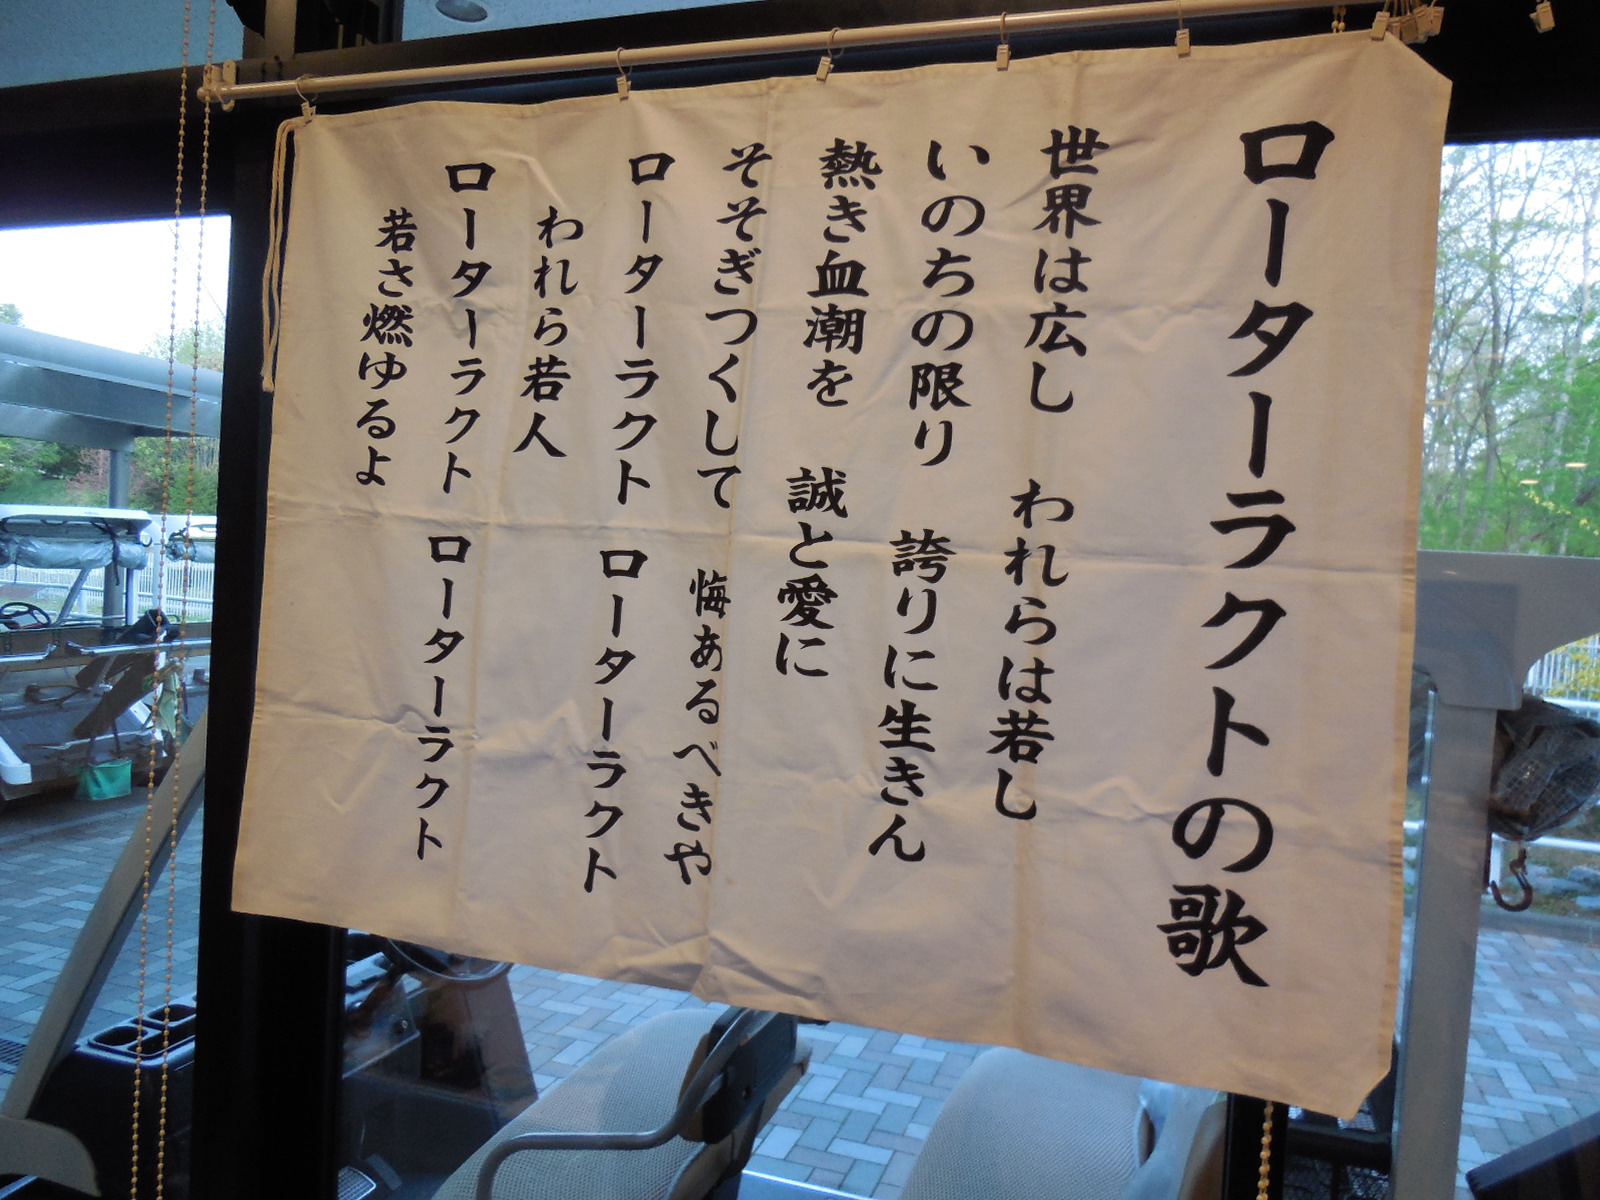 ローターラクトの歌
世界は広し　われらは若し
いのちの限り　誇りに生きん
熱き血潮を　誠と愛に
そそぎつくして　悔あるべきや
ローターラクト　ローターラクト
われら若人
ローターラクト　ローターラクト
若さ燃ゆるよ